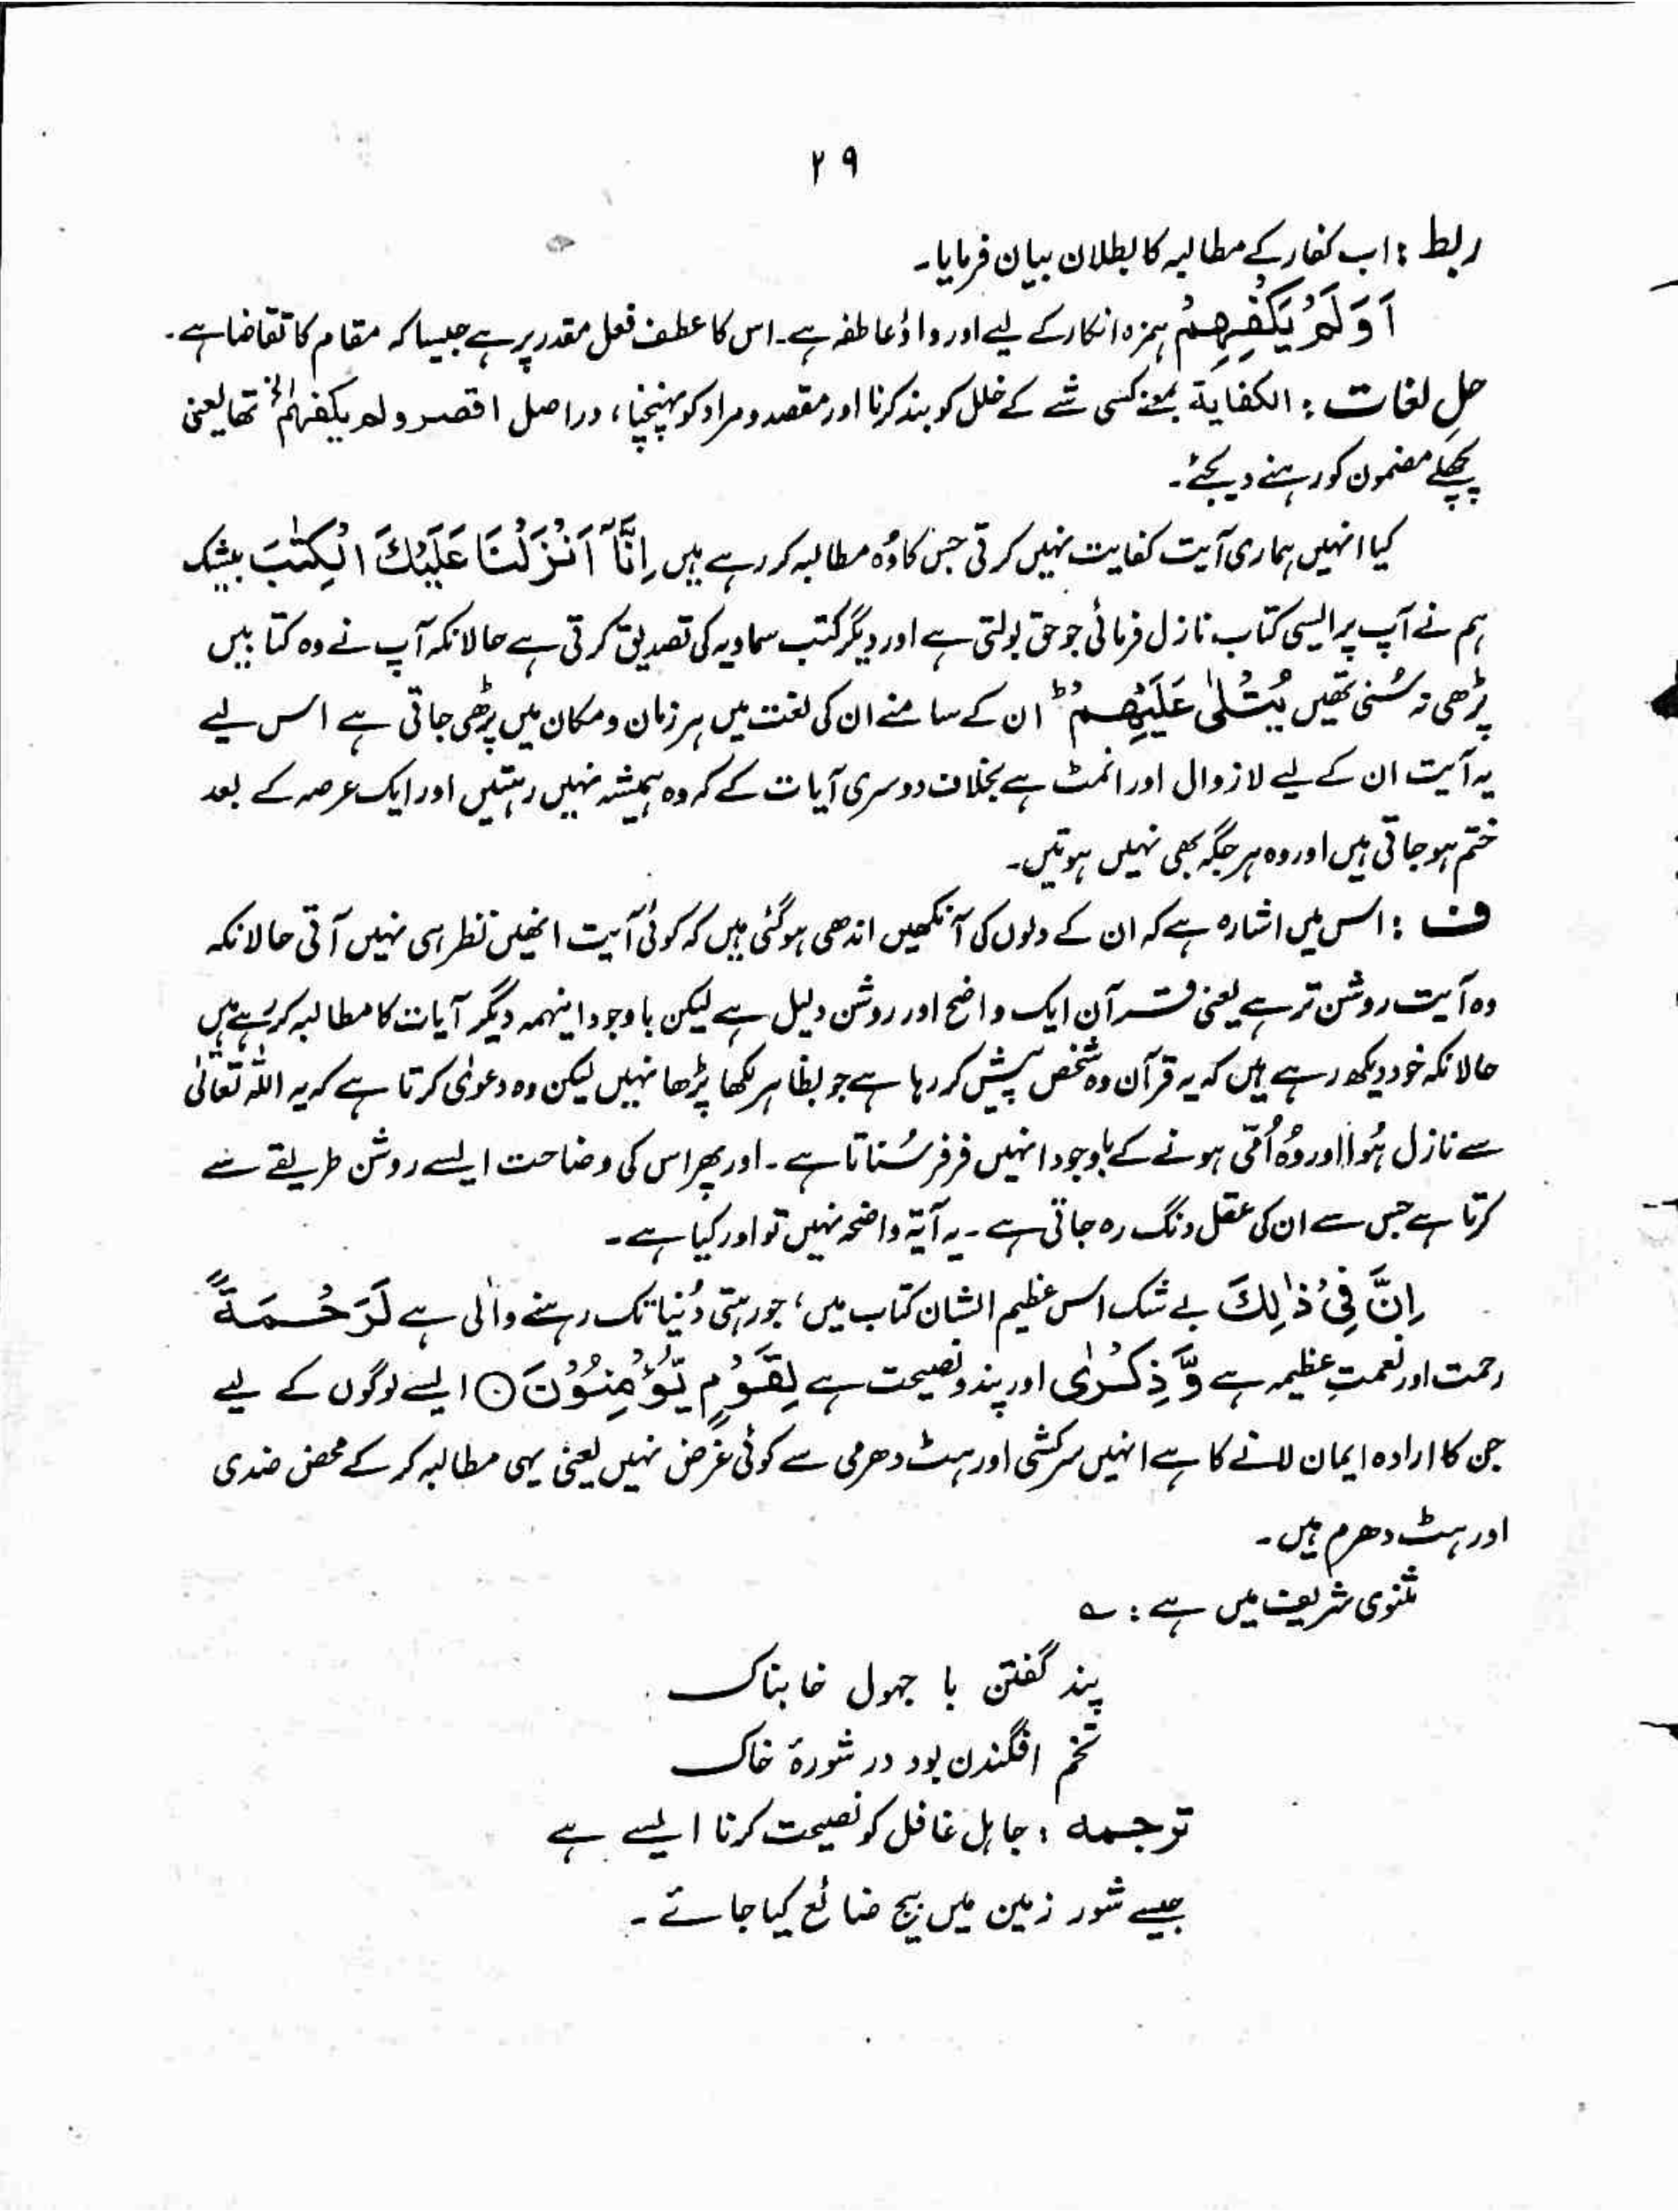 ۲۹
ربط : اب کفار کے مطالبہ کا بطلان بیان فرمایا۔
اَوَلَمْ يَكْفِهِمْ ہمزہ انکار کے لیے اور واؤ عاطفہ ہے۔ اس کا عطف فعل مقدر پر ہے جیسا کہ مقام کا تقاضا ہے۔
حلِ لغات : الکفایۃ بمعنے کسی شے کے خلل کو بند کرنا اور مقصد و مراد کو پہنچنا، دراصل اقصر ولم یکفہم الخ تھا یعنی
پچھلے مضمون کو رہنے دیجئے۔
کیا انہیں ہماری آیت کفایت نہیں کرتی جس کا وُہ مطالبہ کر رہے ہیں اِنَّآ اَنْزَلْنَا عَلَيْكَ الْكِتٰبَ بیشک
ہم نے آپ پر ایسی کتاب نازل فرمائی جو حق بولتی ہے اور دیگر کتب سماویہ کی تصدیق کرتی ہے حالانکہ آپ نے وہ کتابیں
پڑھی نہ سُنی تھیں يُتْلٰى عَلَيْهِمْ ؕ ان کے سامنے ان کی لغت میں ہر زمان و مکان میں پڑھی جاتی ہے اس لیے
یہ آیت ان کے لیے لازوال اور انمٹ ہے بخلاف دوسری آیات کے کہ وہ ہمیشہ نہیں رہتیں اور ایک عرصہ کے بعد
ختم ہو جاتی ہیں اور وہ ہر جگہ بھی نہیں ہوتیں۔
ف : اس میں اشارہ ہے کہ ان کے دلوں کی آنکھیں اندھی ہو گئی ہیں کہ کوئی آیت انھیں نظر ہی نہیں آتی حالانکہ
وہ آیت روشن تر ہے یعنی قرآن ایک واضح اور روشن دلیل ہے لیکن باوجود اینہمہ دیگر آیات کا مطالبہ کر رہے ہیں
حالانکہ خود دیکھ رہے ہیں کہ یہ قرآن وہ شخص پیش کر رہا ہے جو بظاہر لکھا پڑھا نہیں لیکن وہ دعوٰی کرتا ہے کہ یہ اللہ تعالٰی
سے نازل ہُوا اور وُہ اُمّی ہونے کے باوجود انہیں فرفر سُناتا ہے۔ اور پھر اس کی وضاحت ایسے روشن طریقے سے
کرتا ہے جس سے ان کی عقل دنگ رہ جاتی ہے۔ یہ آیۃ واضحہ نہیں تو اور کیا ہے۔
اِنَّ فِيْ ذٰلِكَ بے شک اس عظیم الشان کتاب میں، جو رہتی دُنیا تک رہنے والی ہے لَرَحْمَةً
رحمت اور نعمتِ عظیمہ ہے وَّ ذِكْرٰى اور پند و نصیحت ہے لِقَوْمٍ يُّؤْمِنُوْنَ ○ ایسے لوگوں کے لیے
جن کا ارادہ ایمان لانے کا ہے انہیں سرکشی اور ہٹ دھرمی سے کوئی غرض نہیں یعنی یہی مطالبہ کر کے محض ضدی
اور ہٹ دھرم ہیں۔
مثنوی شریف میں ہے : ؎
پند گفتن با جہول خابناک
تخم افگندن بود در شورہٗ خاک
ترجمہ : جاہل غافل کو نصیحت کرنا ایسے ہے
جیسے شور زمین میں بیج ضائع کیا جائے۔